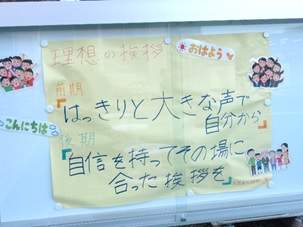 理想の挨拶
おはよう
前期
はっきりと大きな声で
自分から
こんにちは
後期
自信を持ってその場に
合った挨拶を